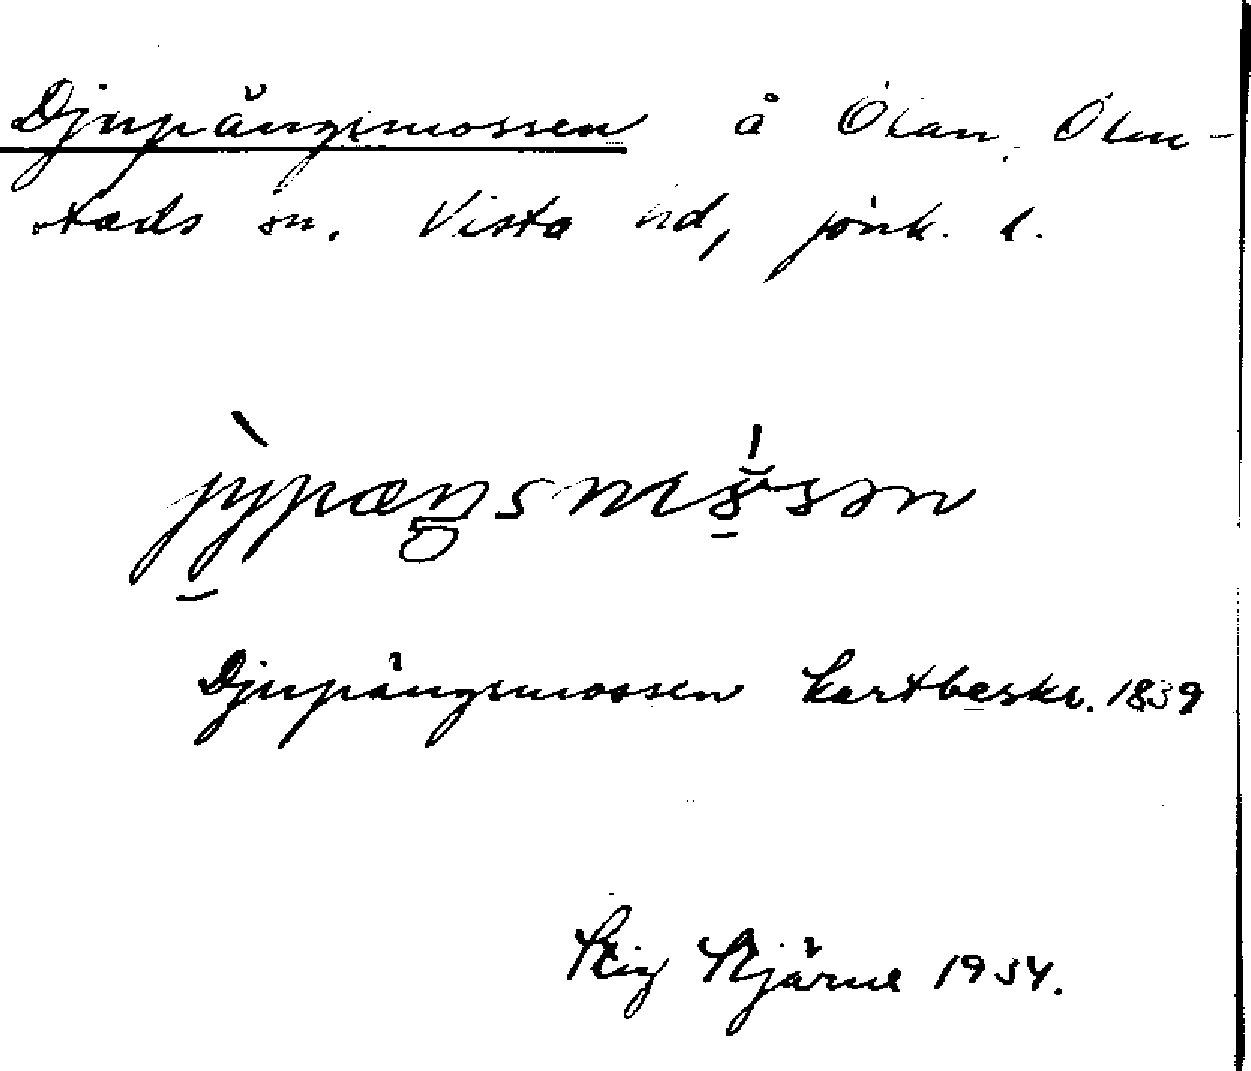 Djupängsmossen å Ölan, Ölm-
stads sn. Vista hd, Jönk. l.
Djupängsmossen kartbeskr. 1839
Stig Stjärne 1954.